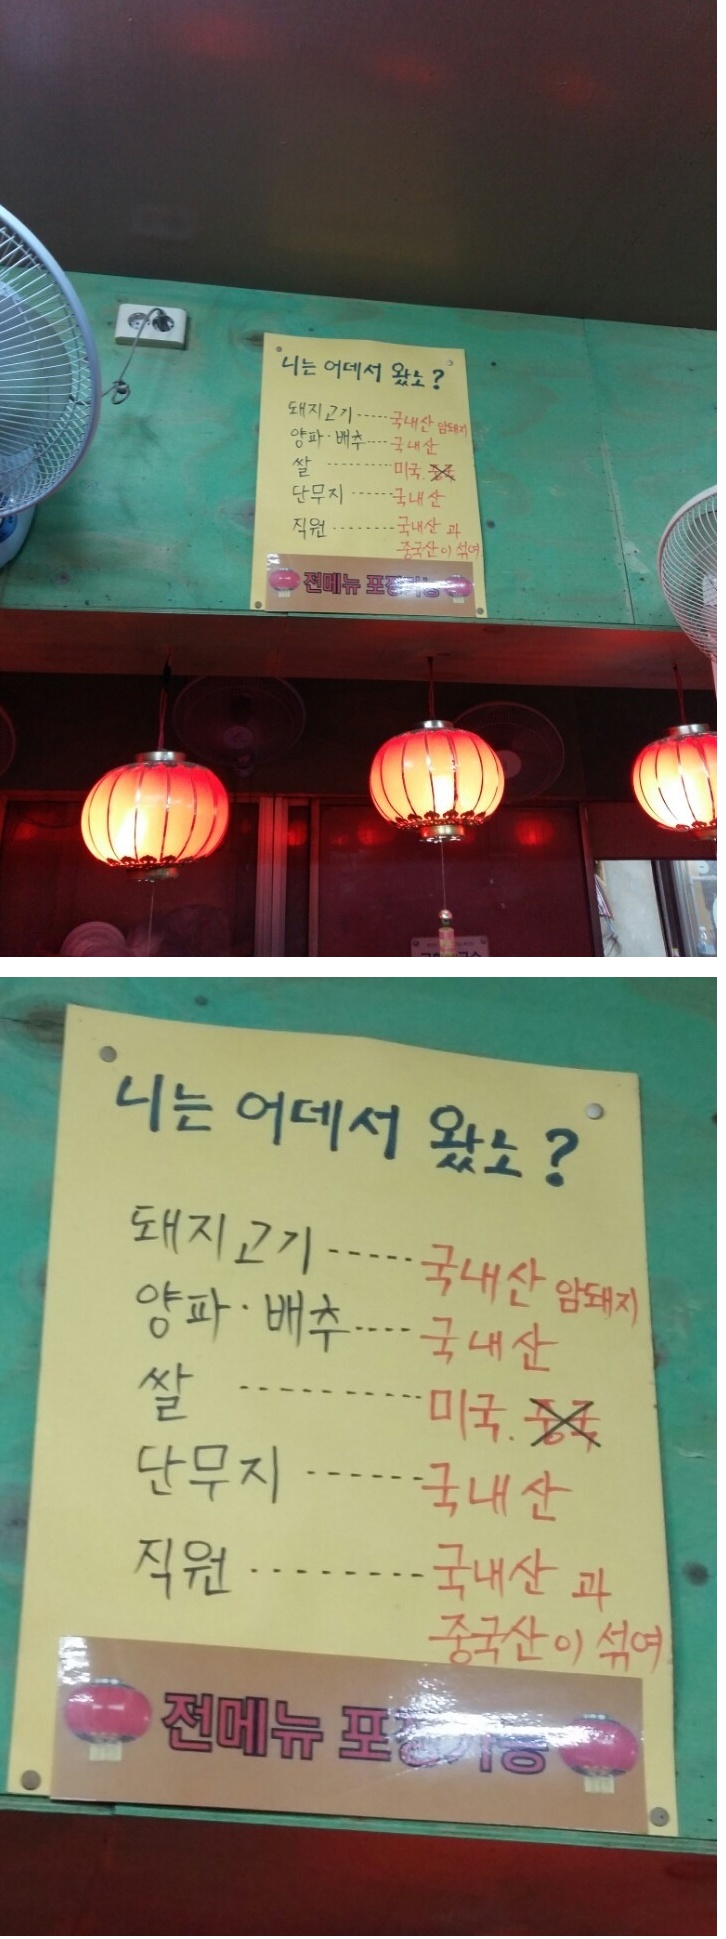 니는 어데서 왔노?
돼지고기-----국내산 암돼지
양파·배추----국내산
쌀 ---------미국. 중국
단무지 ------국내산
직원 --------국내산 과
중국산이 섞여
전메뉴 포장가능
니는 어데서 왔노?
돼지고기-----국내산 암돼지
양파·배추----국내산
쌀 ---------미국. 중국
단무지 ------국내산
직원 --------국내산 과
중국산이 섞여
전메뉴 포장가능